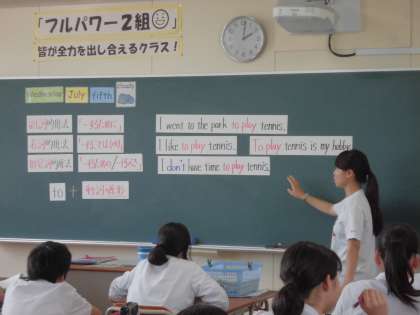 「フルパワー2組」
皆が全力を出し合えるクラス!
Wednesday July fifth cloudy
副詞的用法 「~するために」 I went to the park to play tennis.
名詞的用法 「~すること」 I like to play tennis. To play tennis is my hobby.
形容詞的用法 I don't have time to play tennis.
to + 動詞の原形